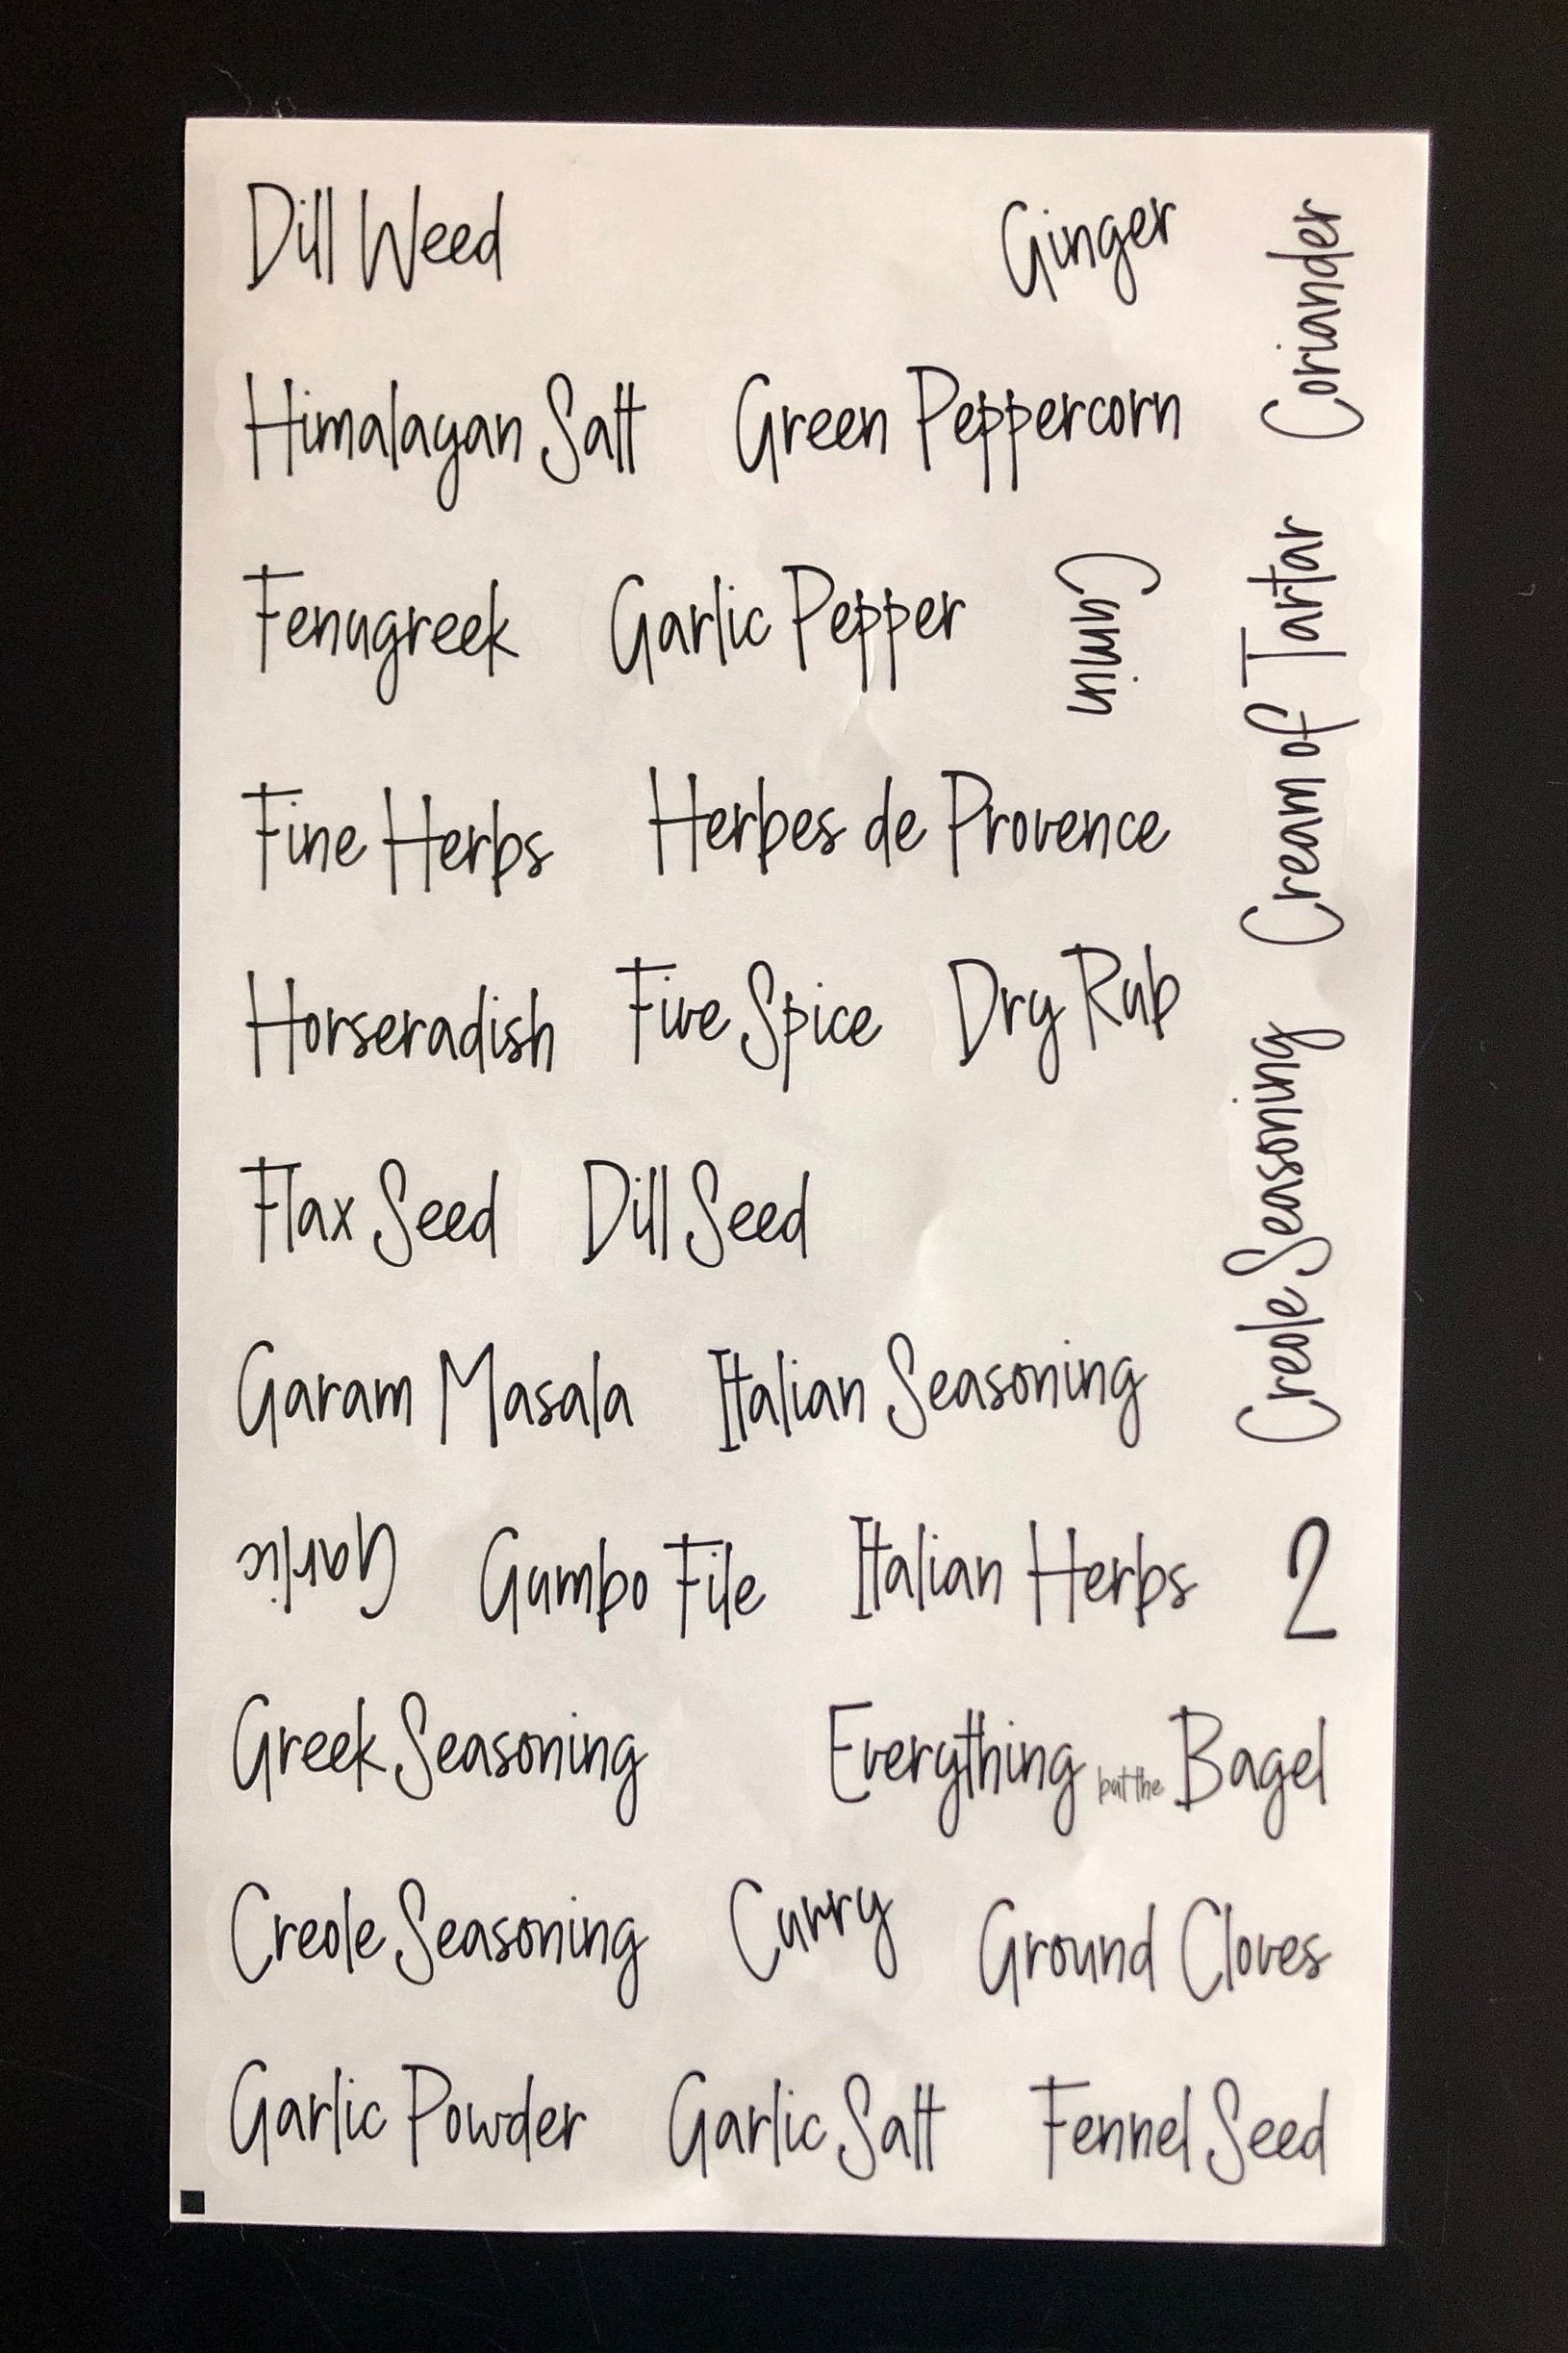 Dill Weed Ginger
Himalayan Salt Green Peppercorn
Fenugreek Garlic Pepper
Cumin
Fine Herbs Herbes de Provence
Horseradish Five Spice Dry Rub
Flax Seed Dill Seed
Garam Masala Italian Seasoning
Garlic Gumbo File Italian Herbs 2
Greek Seasoning Everything but the Bagel
Creole Seasoning Curry Ground Cloves
Garlic Powder Garlic Salt Fennel Seed
Coriander
Cream of Tartar
Creole Seasoning